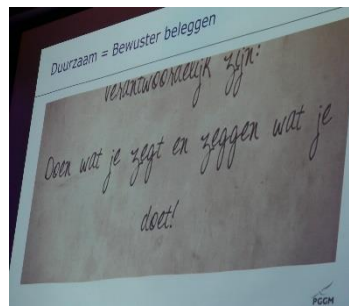 Duurzaam = Bewuster beleggen
verantwoordelijk zijn:
Doen wat je zegt en zeggen wat je
doet!
PGGM